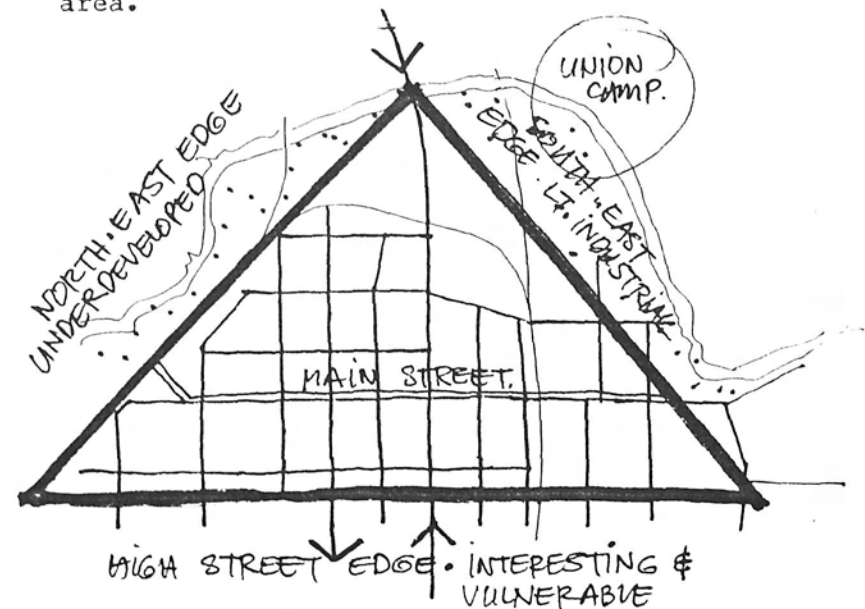 area.
UNION
CAMP.
NORTH.EAST EDGE
UNDERDEVELOPED
SOUTH.EAST
EDGE. LT. INDUSTRIAL
MAIN STREET.
HIGH STREET EDGE. INTERESTING &
VULNERABLE